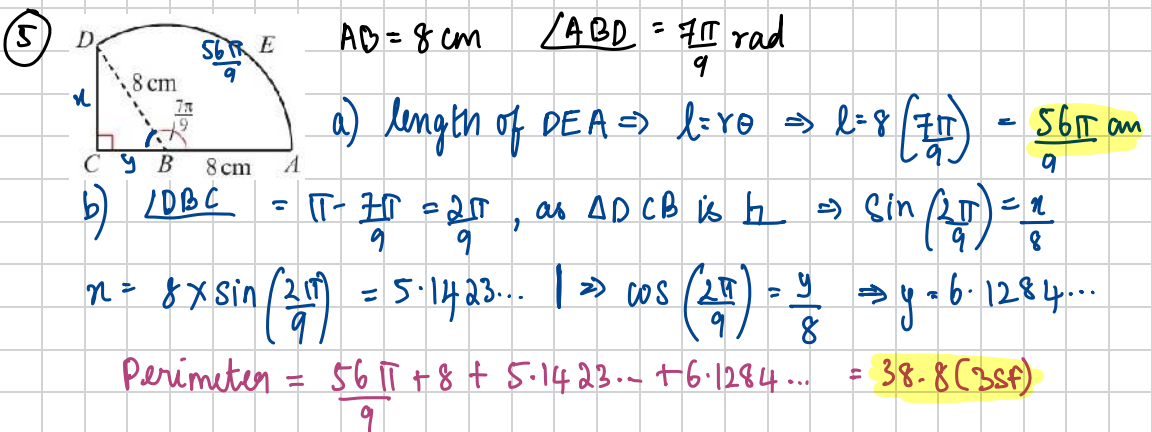 5
D E A B C
8 cm 7π/9 8 cm 56π/9 x y
AB = 8 cm ∠ABD = 7π/9 rad
a) length of DEA ⇒ l = rθ ⇒ l = 8(7π/9) = 56π/9 cm
b) ∠DBC = π - 7π/9 = 2π/9, as ΔDCB is ⇒ sin(2π/9) = x/8
x = 8 × sin(2π/9) = 5.1423... | ⇒ cos(2π/9) = y/8 ⇒ y = 6.1284...
Perimeter = 56π/9 + 8 + 5.1423... + 6.1284... = 38.8 (3sf)